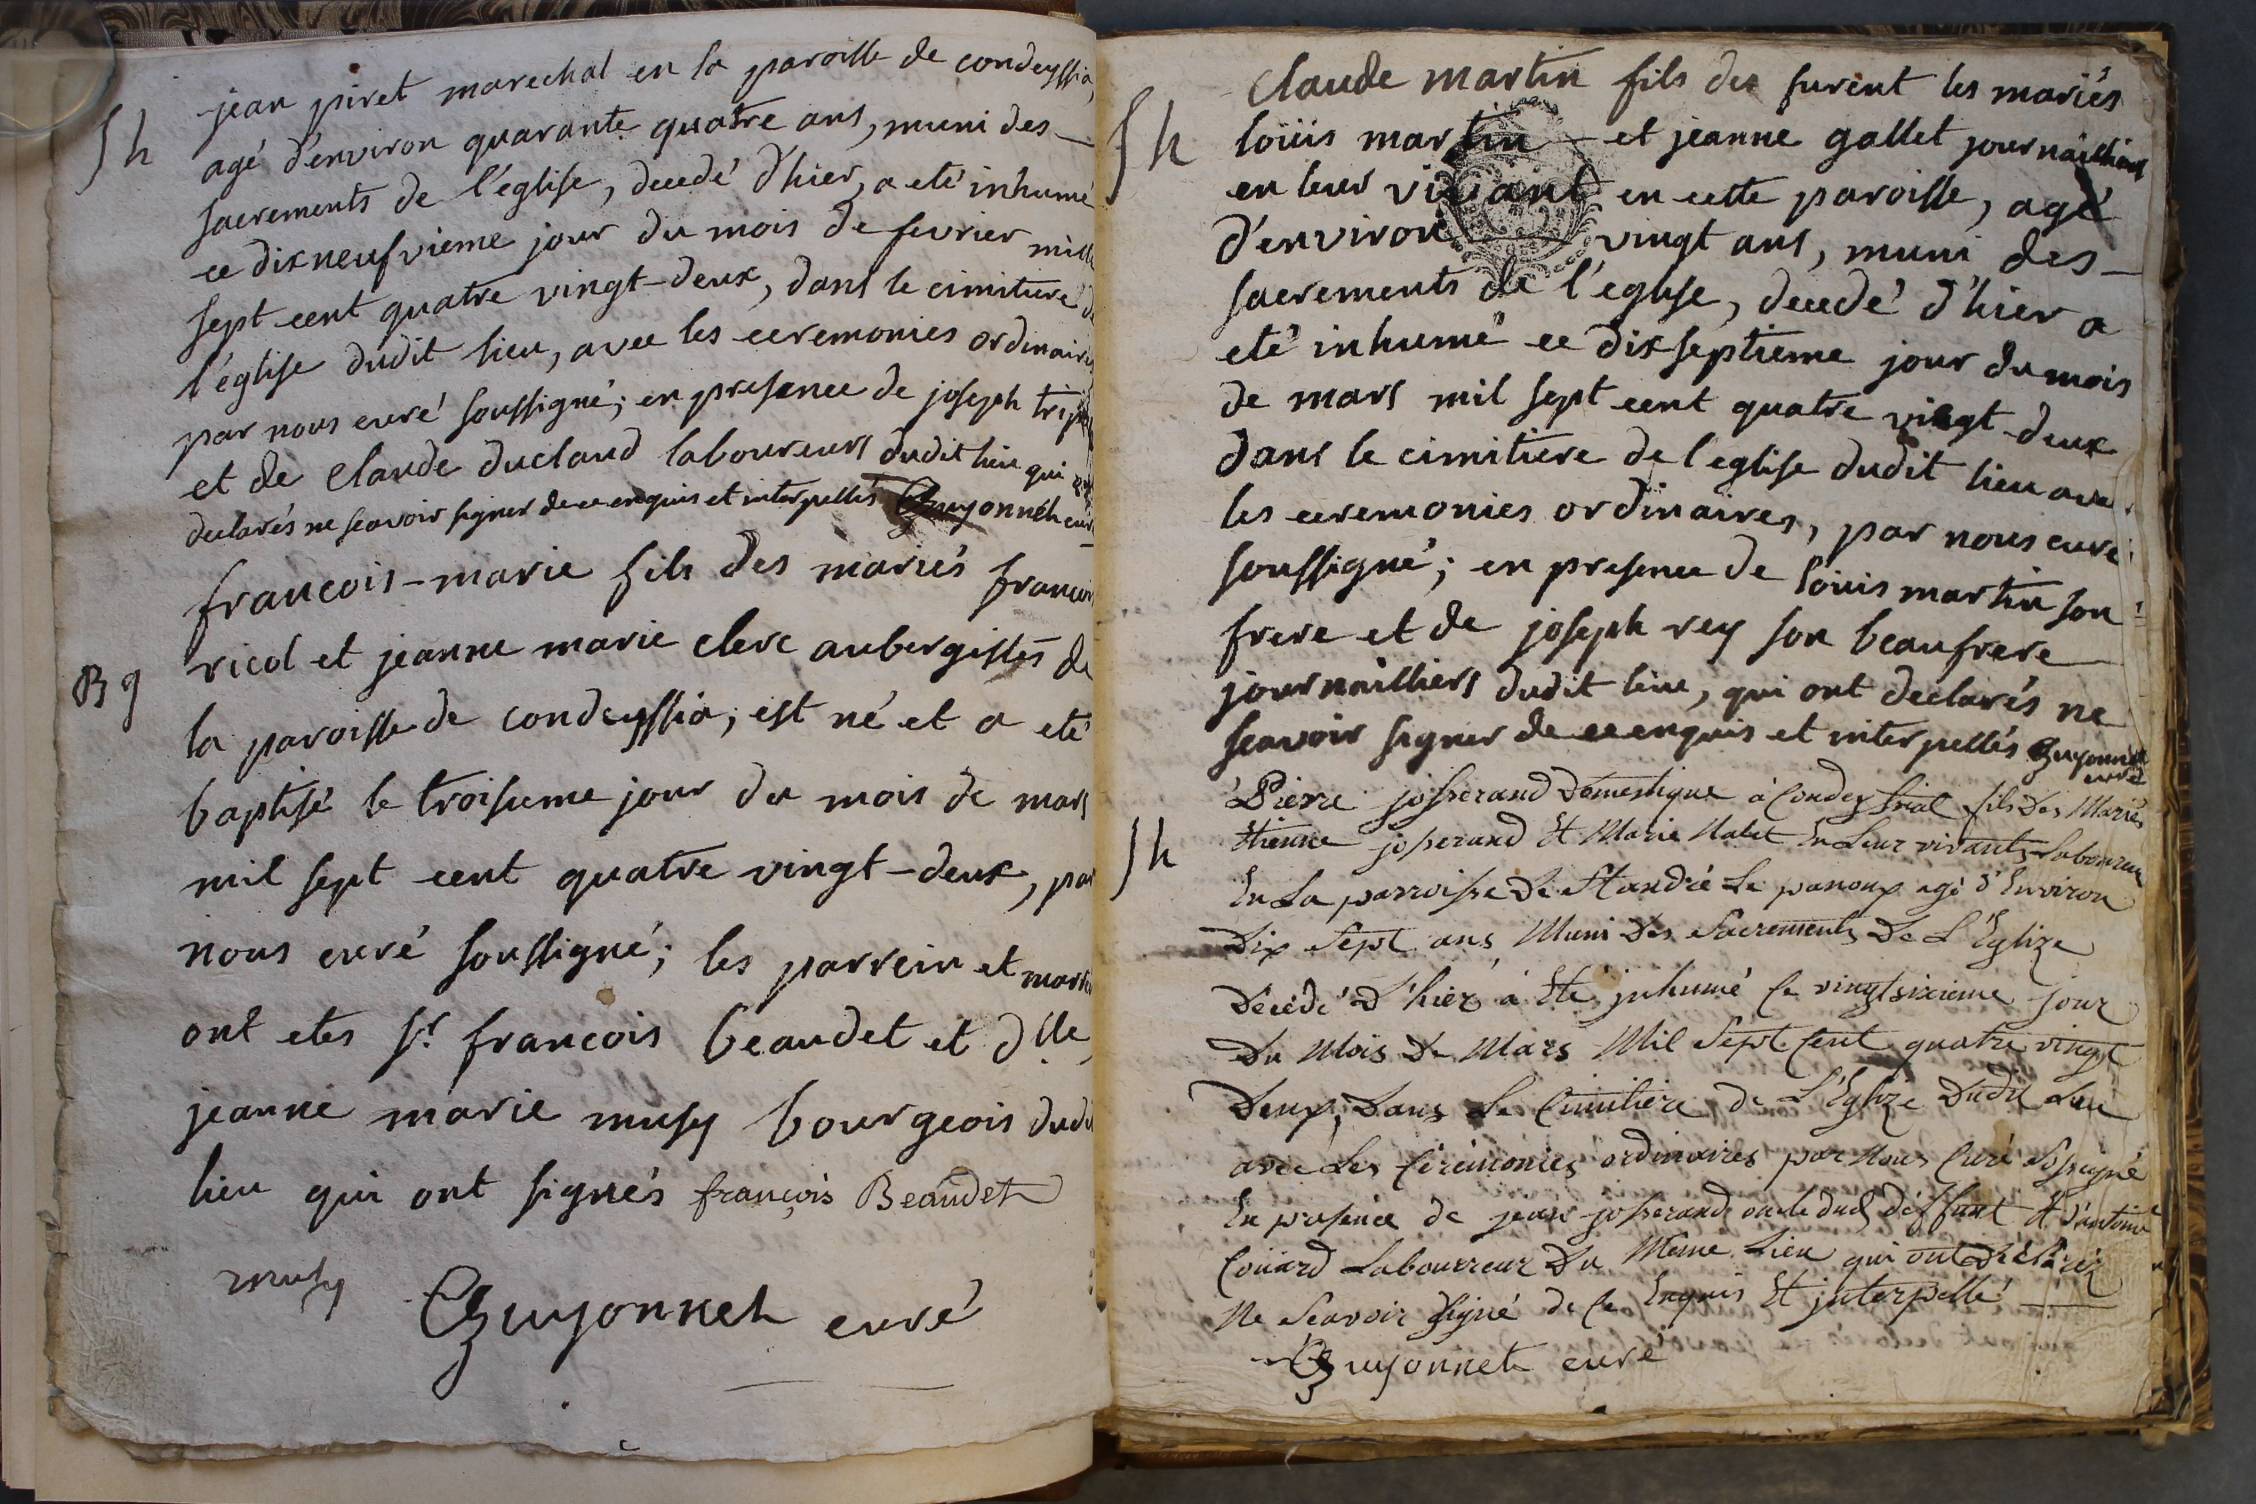 jean piret marechal en la paroisse de condeyssia,
Sh
agé d'environ quarante quatre ans, muni des
sacrements de l'église, decedé d'hier, a eté inhumé
ce dixneufvieme jour du mois de fevrier mille
sept cent quatre vingt-deux, dans le cimitiere de
l'église dudit lieu, avec les ceremonies ordinaires
par nous curé soussigné; en presence de joseph
et de claude ducland laboureurs dudit lieu qui ont
declarés ne scavoir signer de ce enquis et interpellés Guyonnet curé
francois-marie fils des mariés francois
Bg
ricol et jeanne marie clerc aubergistes de
la paroisse de condeyssia; est né et a eté
baptisé le troisieme jour du mois de mars
mil sept cent quatre vingt-deux, par
nous curé soussigné; les parrein et
ont etes sr. francois beaudet et dlle,
jeanne marie musy bourgeois dudi
lieu qui ont signés françois Beaudet
musy
Guyonnet curé
Claude martin fils des furent les mariés
Sh
loüis martin et jeanne gallet journailliers
en leur vivant en cette paroisse, agé
d'environ vingt ans, muni des
sacrements de l'église, decedé d'hier a
eté inhumé ce dixseptieme jour du mois
de mars mil sept cent quatre vingt-deux
dans le cimitiere de l'eglise dudit lieu avec
les ceremonies ordinaires, par nous curé
soussigné; en presence de loüis martin son
frere et de joseph rey son beaufrere
journailliers dudit lieu, qui ont declarés ne
scavoir signer de ce enquis et interpellés Guyonnet
curé
Pierre josserand Domestique à Condeyssiat fils des Mariés
Sh
Etienne josserand Et Marie En Leur vivants Laboureur
En La parroisse De St andré Le panoux agé d'Environ
Dix Sept ans Muni Des Sacrements De L'Eglize
Décédé D'hiér à Eté jnhumé Ce vingtsixieme Jour
Du Mois De Mars Mil Sept Cent quatre vingt
Deux, Dans Le Cimitiére de L'Eglize Dudit Lieu
avec Les Cérémonies ordinaires par Nous Curé
En présence de jean josserand oncle dud déffunt Et d'antoine
Laboureur Du Meme Lieu qui ont Déclaréz
Ne Scavoir Signé de Ce Enquis Et jnterpellé
Guyonnet curé